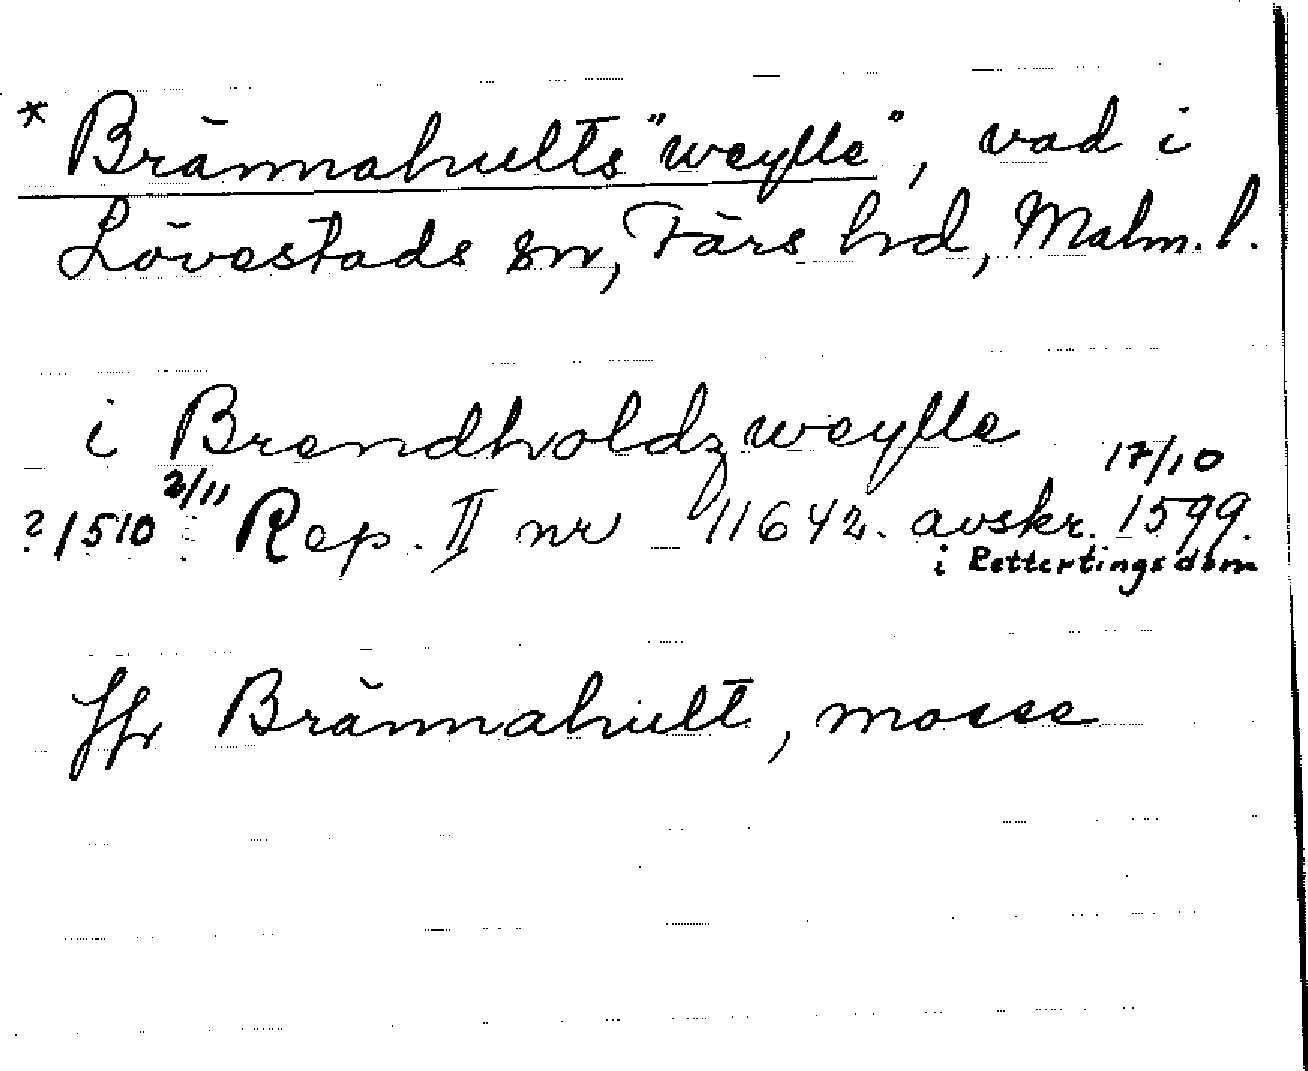 * Brännahults "weylle", vad i
Lövestads sn, Färs hd, Malm. l.
i Brendholdz weylle
? 1510 2/11 Rep. II nr 11642. avskr. 17/10 1599.
i Rettertingsdom
Jfr Brännahult, mosse